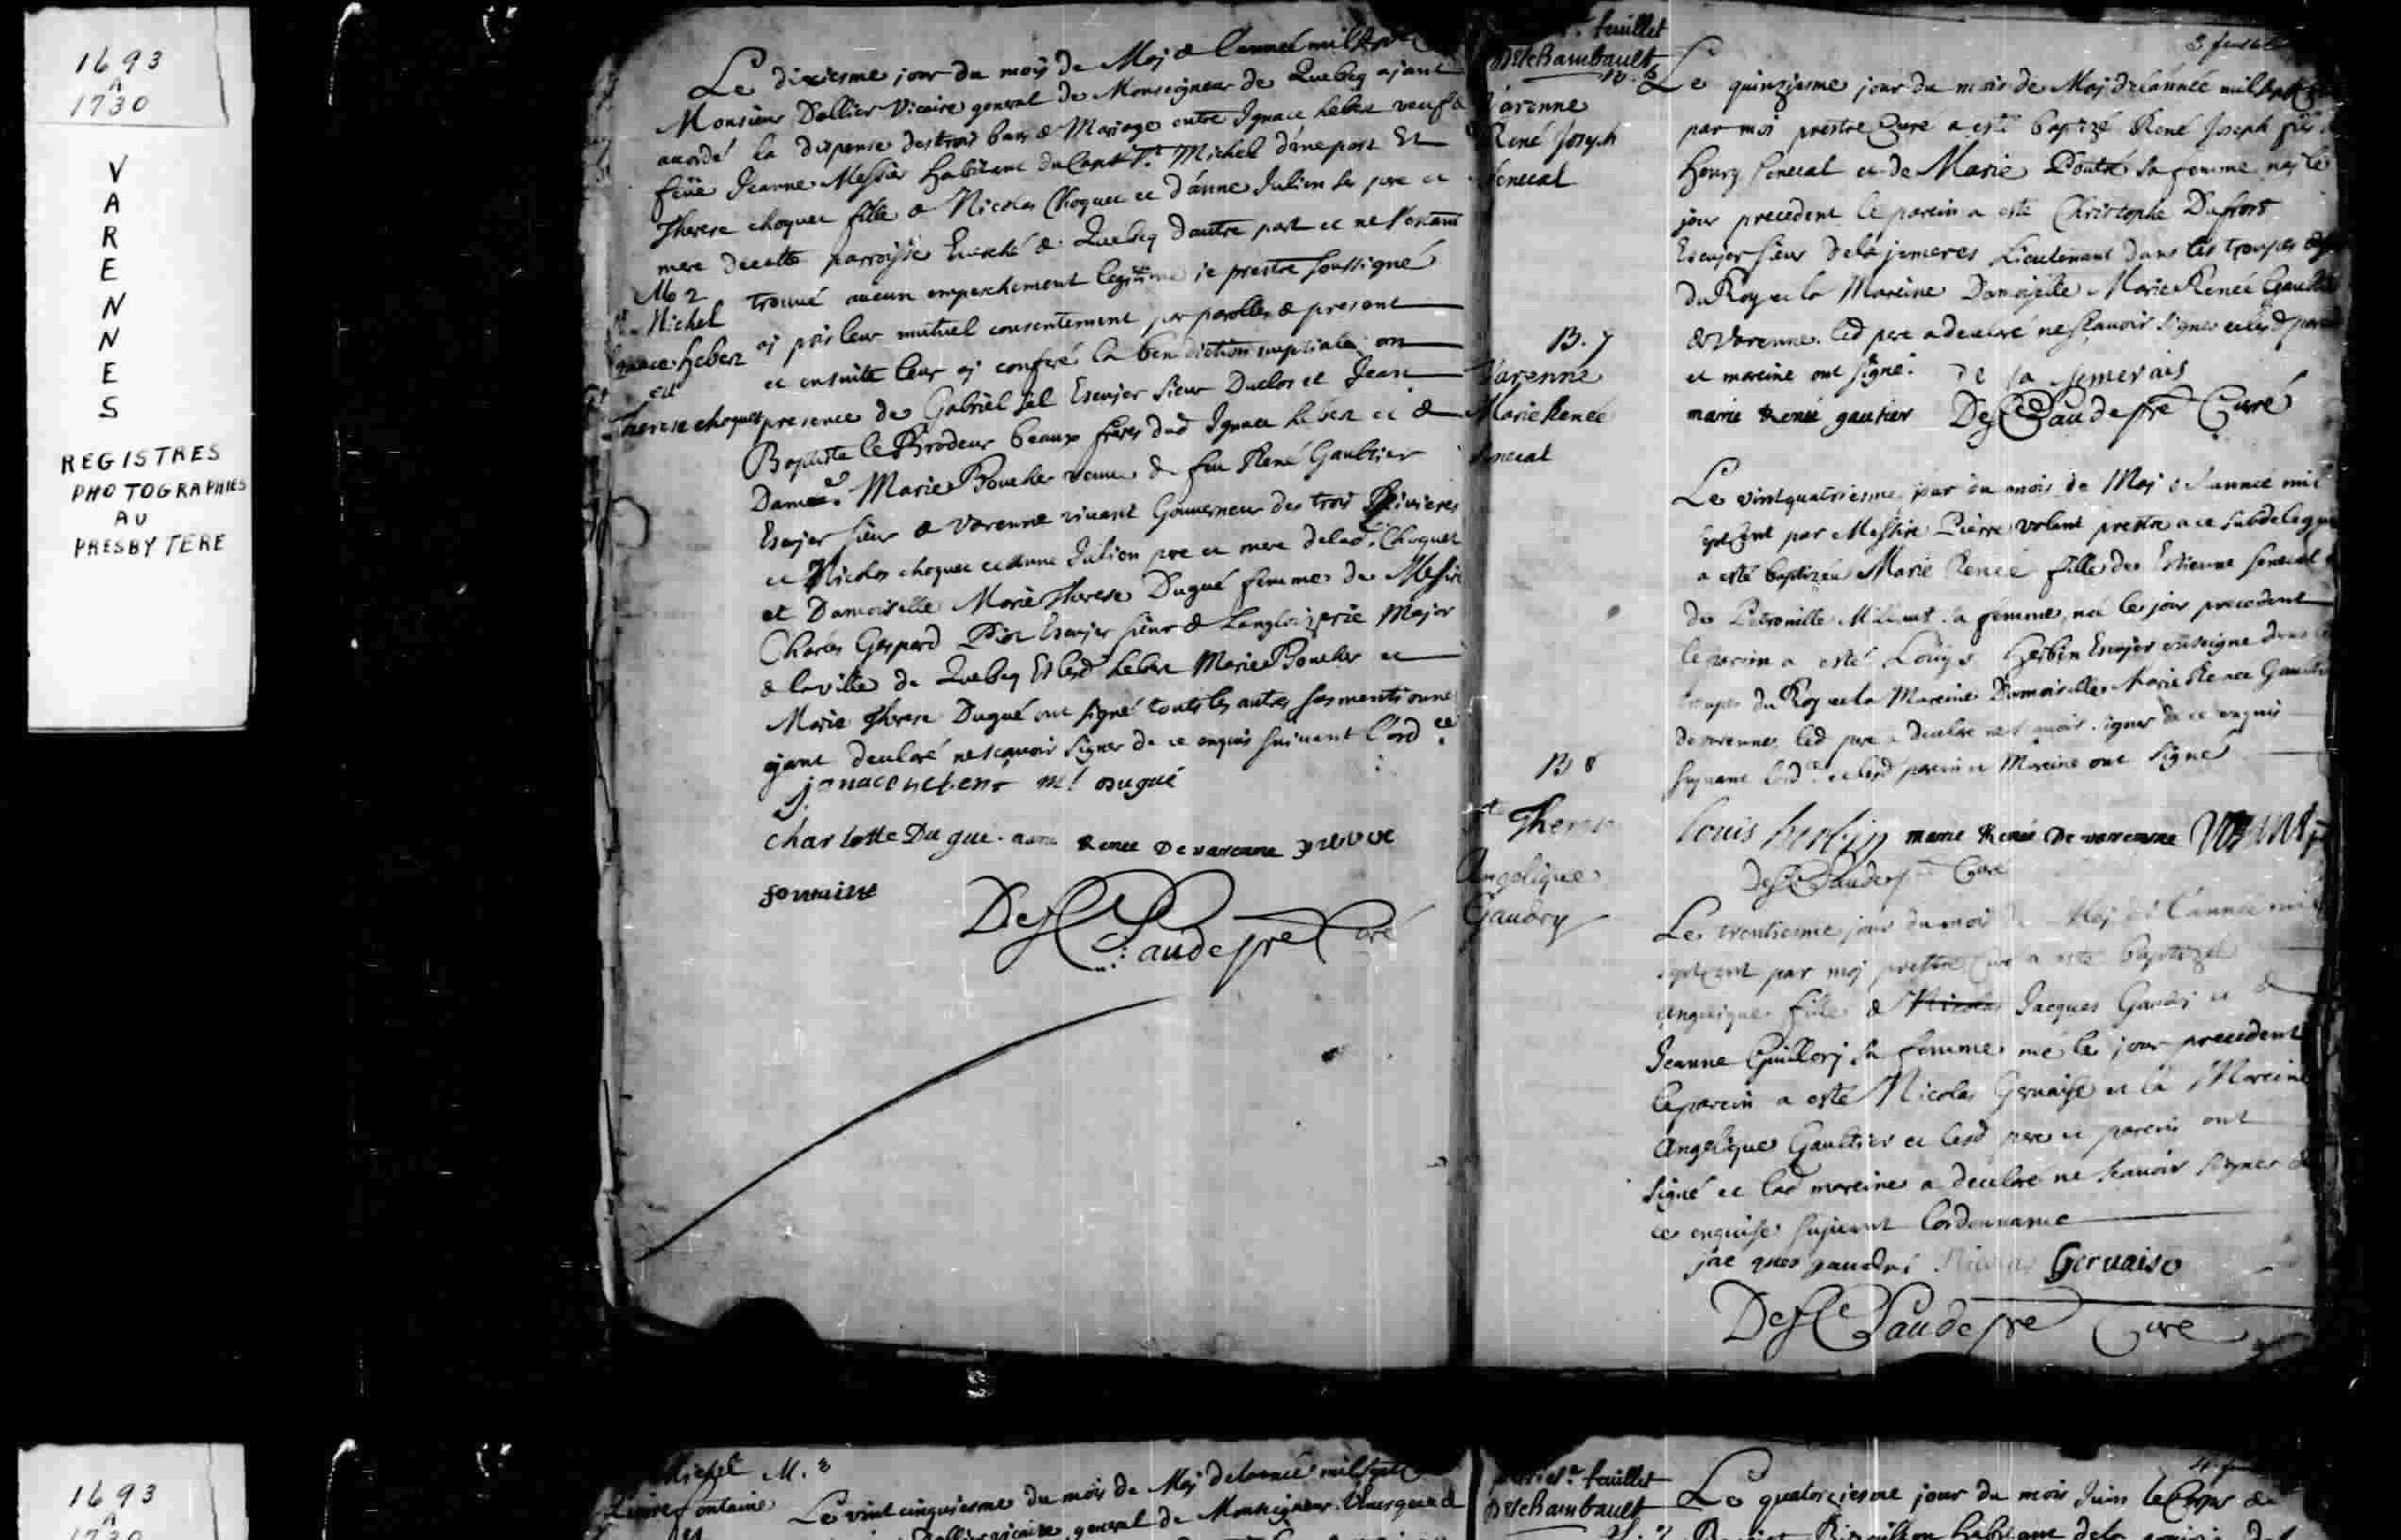 1693
A
1730
V
A
R
E
N
N
E
S
REGISTRES
PHOTOGRAPHIES
AU
PRESBYTERE
Le dixiesme jour du mois de Maj de l'anneé mil sept
Monsieur Dollier Vicaire general de Monseigneur de Quebeq ajant
acordé la dispense des trois bans de Mariage entre Ignace heber veuf de
feüe Jeanne Messier habitant du Cap St. Michel d'une part Et
Therese choquet fille de Nicolas Choquet et d'anne Julien ses pere et
mere de cette parroisse Evesché de Quebeq d'autre part et ne s'estant
M 2
St. Michel
Ignace heber
et
Therese choquet
trouvé aucun empeschement legitime je prestre soussigné
aj pris leur mutuel consentement par parolles de present
et ensuite leur aj conferé la benediction nuptiale en
presence de Gabriel Sel Escujer Sieur Duclos et Jean
Baptiste le Brodeur beaux freres dud Ignace heber et de
Dame Marie Boucher veuve de feu René Gaultier
Escujer sieur de Varenne vivant Gouverneur des trois Rivieres
et Nicolas choquet et anne Julien pere et mere de lad. Choquet
et Damoiselle Marie Therese Dugué femme de Messire
Charles Gaspard Piot Escujer sieur de Langloizerie Major
de la ville de Quebeq Et lesd heber Marie Boucher et
Marie Therese Dugué ont signé touts les autres sus mentionne
ajant declaré ne scavoir signer de ce enquis suivant l'ord ce
jgnace heber mt dugué
charlotte Dugué. marie Renee De varenne
fontaine
Des Claude pre Curé
feuillet
DeRchambault
B. 6
Varenne
René Joseph
Senecal
3 feuillet
Le quinziesme jour du mois de Maj de l'année mil sept Cent
par moi prestre Curé a esté baptizé René Joseph fils de
Henry Senecal et de Marie Doutre sa femme naj le
jour precedent le parein a esté Christophe Dufrost
Escujer sieur de la jemeres Lieutenant dans les troupes
du Roy et la Mareine Damoiselle Marie Renée Gaultier
de Varenne. led pere a declaré ne sçavoir signer et lesd parein
et mareine ont signé. de la Jemerais
marie Renée gautier Des Claude pre Curé
B. 7
Varenne
Marie Renée
Senecal
Le vintquatriesme jour du mois de Maj de l'année mil
sept Cent par Messire Pierre volant prestre a ce subdelegué
a esté baptizeé Marie Renée fille de Estienne Senecal
de Petronille Milhaut sa femme, neé le jour precedent
le parein a esté Louys Herbin Escujer enseigne dans les
troupes du Roy et la Mareine Damoiselle Marie Renee Gaultier
de varenne led pere a declare ne sçavoir signer de ce enquis
suyvant l'ord ce et lesd parein et Mareine ont signé
Louis herbin marie Renée De varenne Volant
Des Claude pre Curé
B 8
St Therese
Angelique
Gaudry
Le trentiesme jour du mois de Maj de l'année mil
sept cent par moj prestre Curé a esté baptizeé
angelique fille de Nicolas Jacques Gaudri et de
Jeanne Guillorj sa femme née le jour precedent
le parein a esté Nicolas Gervaise et la Mareine
Angelique Gaultier et lesd pere et parein ont
signé et lad mareine a declaré ne scavoir signer de
ce enquise sujvant l'ordonnance
jacques gaudri Nicolas Gervaise
Des Claude pre Curé
1693
A
1730
St Michel M. 3
fontaine
Le vint cinquiesme du mois de Maj de l'anneé mil sept
Dollier vicaire general de Monseigneur l'evesque de
feuillet
DeRchambault
Le quatorziesme jour du mois Juin le Corps de